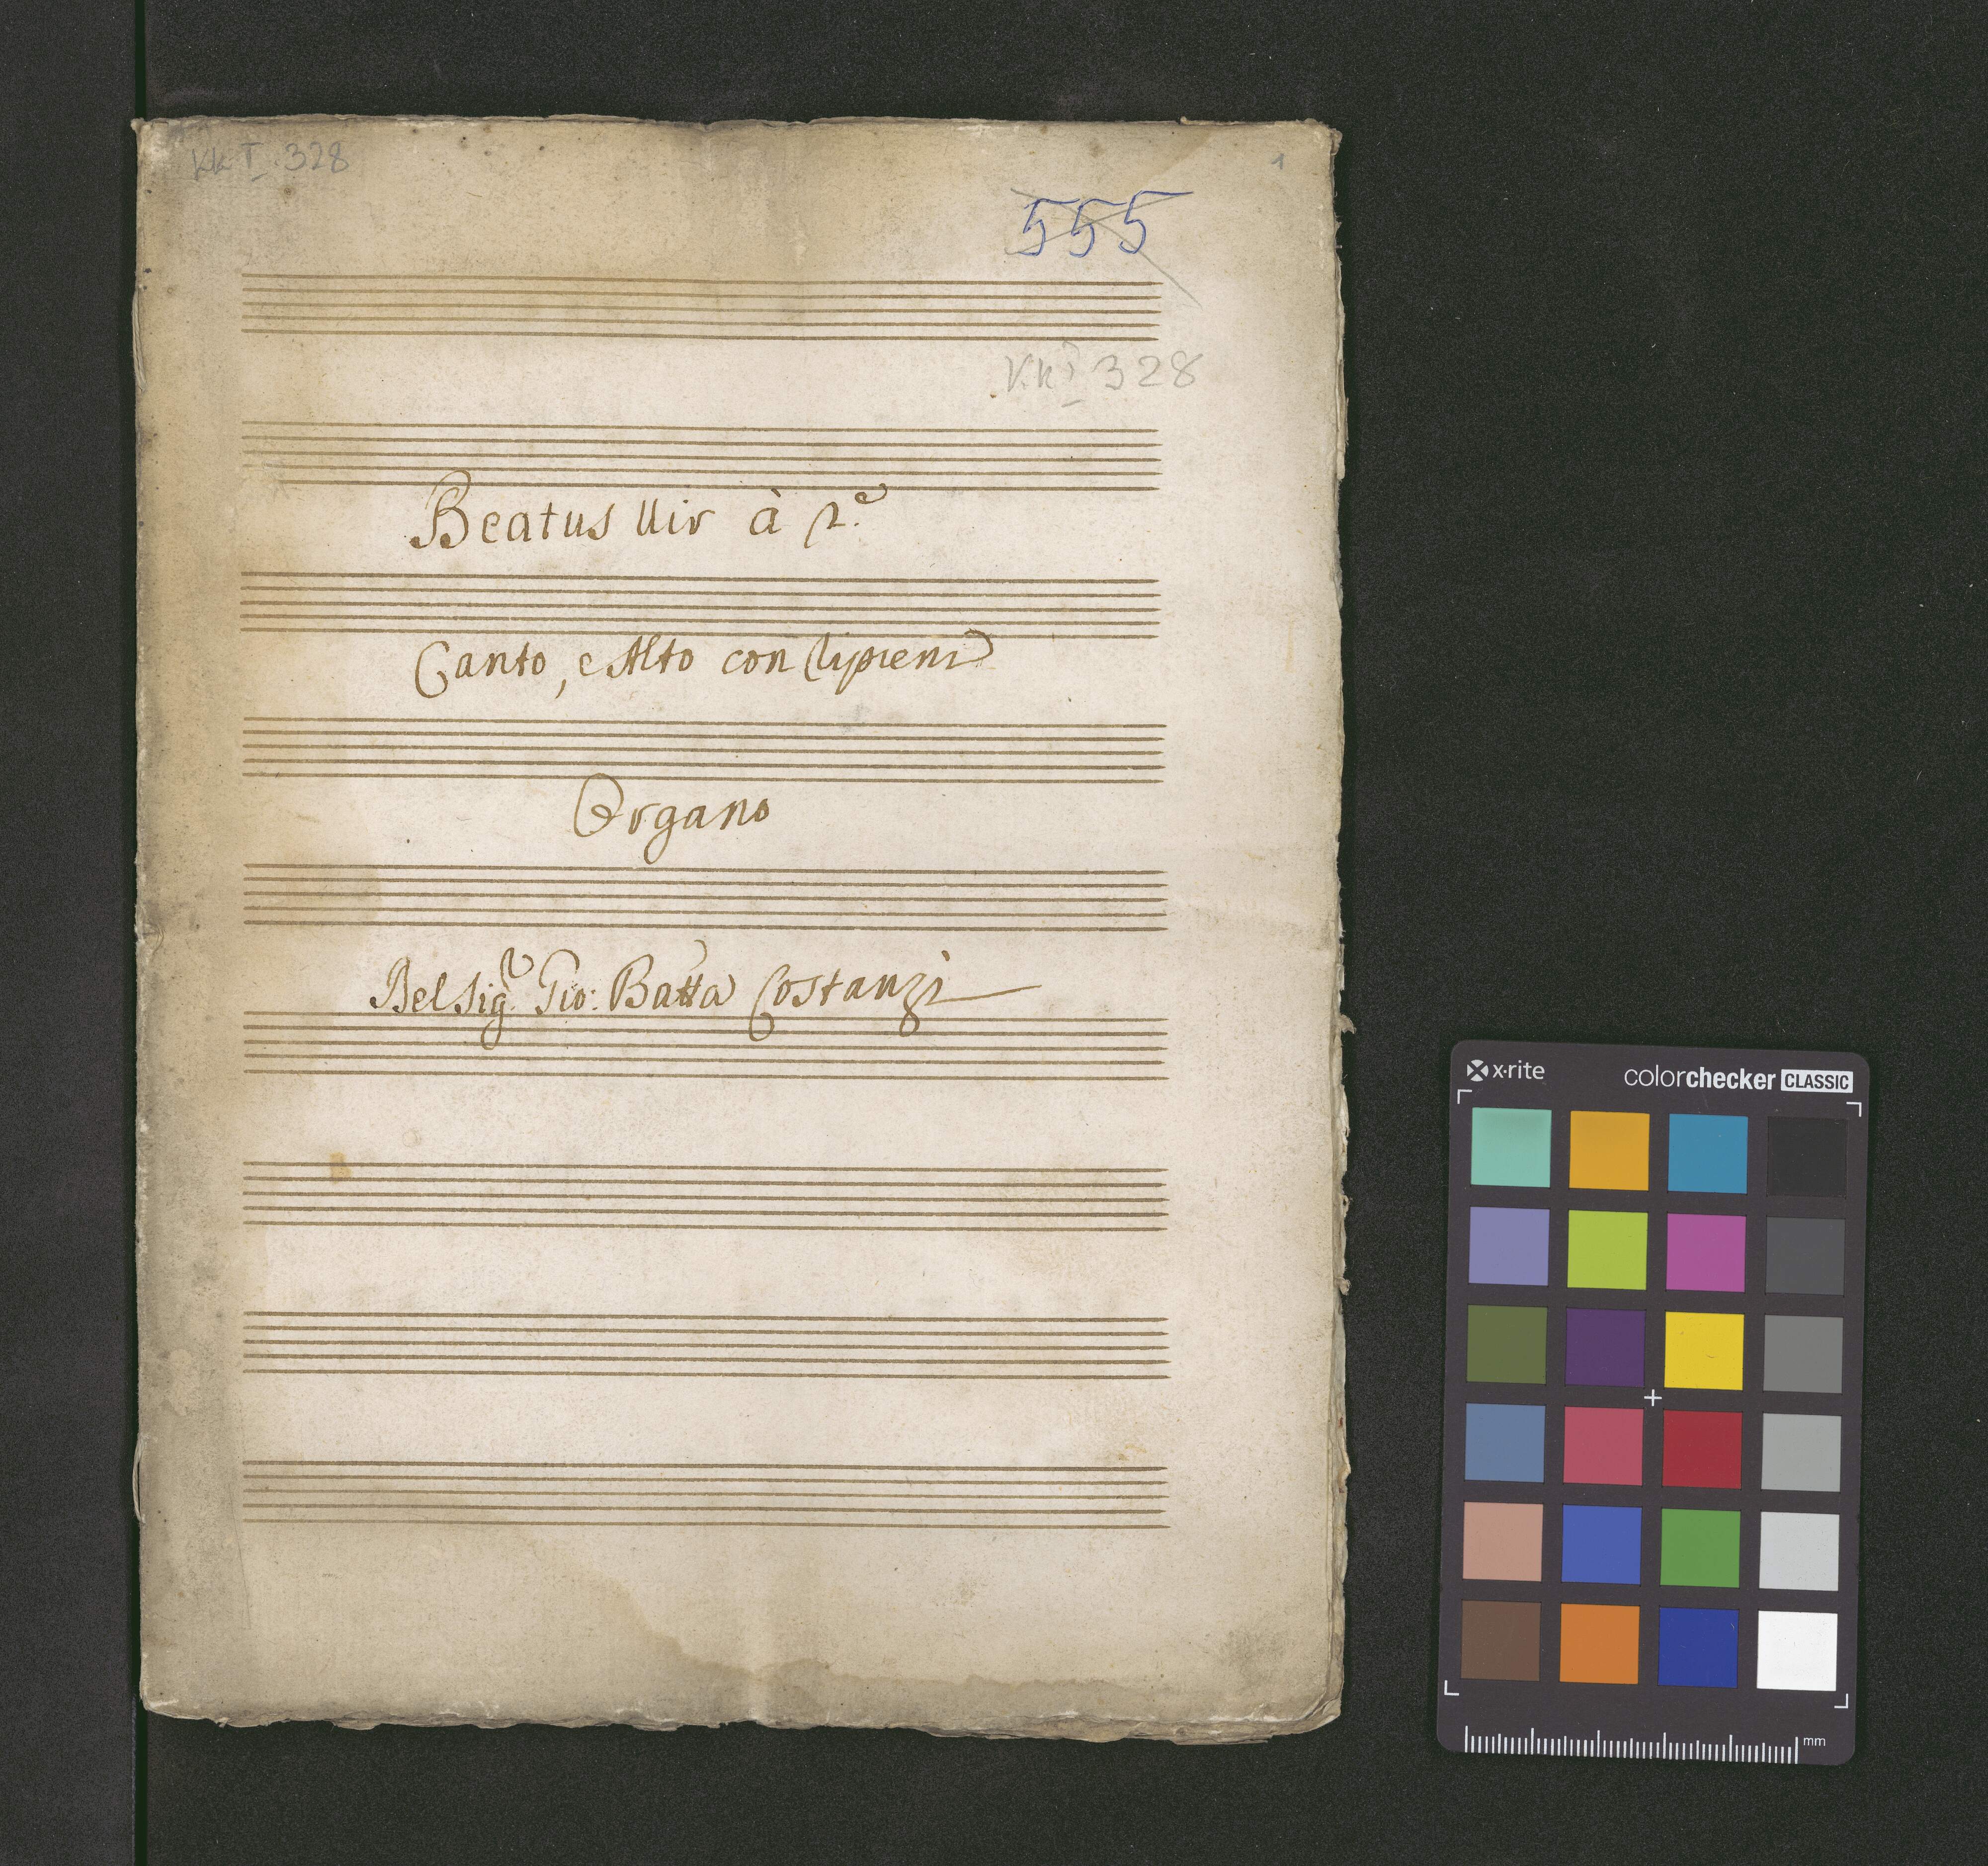 Kk I 328
1
555
Kk I 328
Beatus Uir à 2.e
Canto, e Alto con Ripieni
Organo
Del Sig.r Gio: Batta Costanzi
x·rite
colorchecker CLASSIC
mm